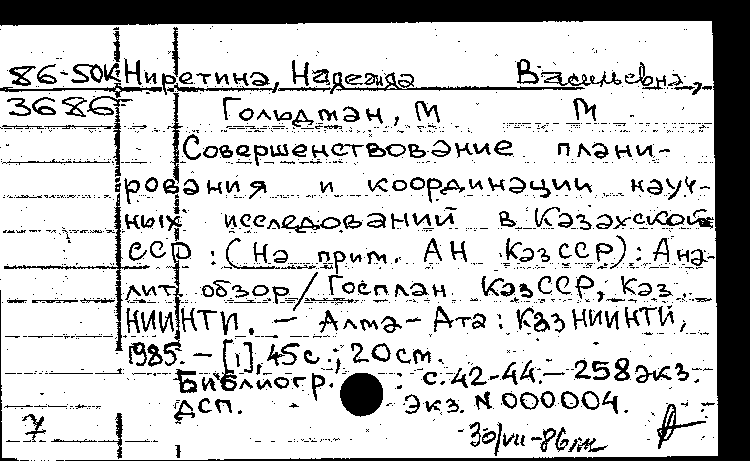 86-50K Ниретина, Надежда Васильевна,
3686 Гольдман, М М.
Совершенствование плани-
рования и координации науч-
ных исследований в Казахской
ССР : (На прим. АН КазССР) : Ана-
лит. обзор / Госплан КазССР, Каз.
НИИНТИ. — Алма-Ата : КазНИИНТИ,
1985. — [1], 45 с. ; 20 см.
Библиогр. : с. 42-44. — 258 экз.
ДСП. Экз. N 000004.
7 30/VII-86